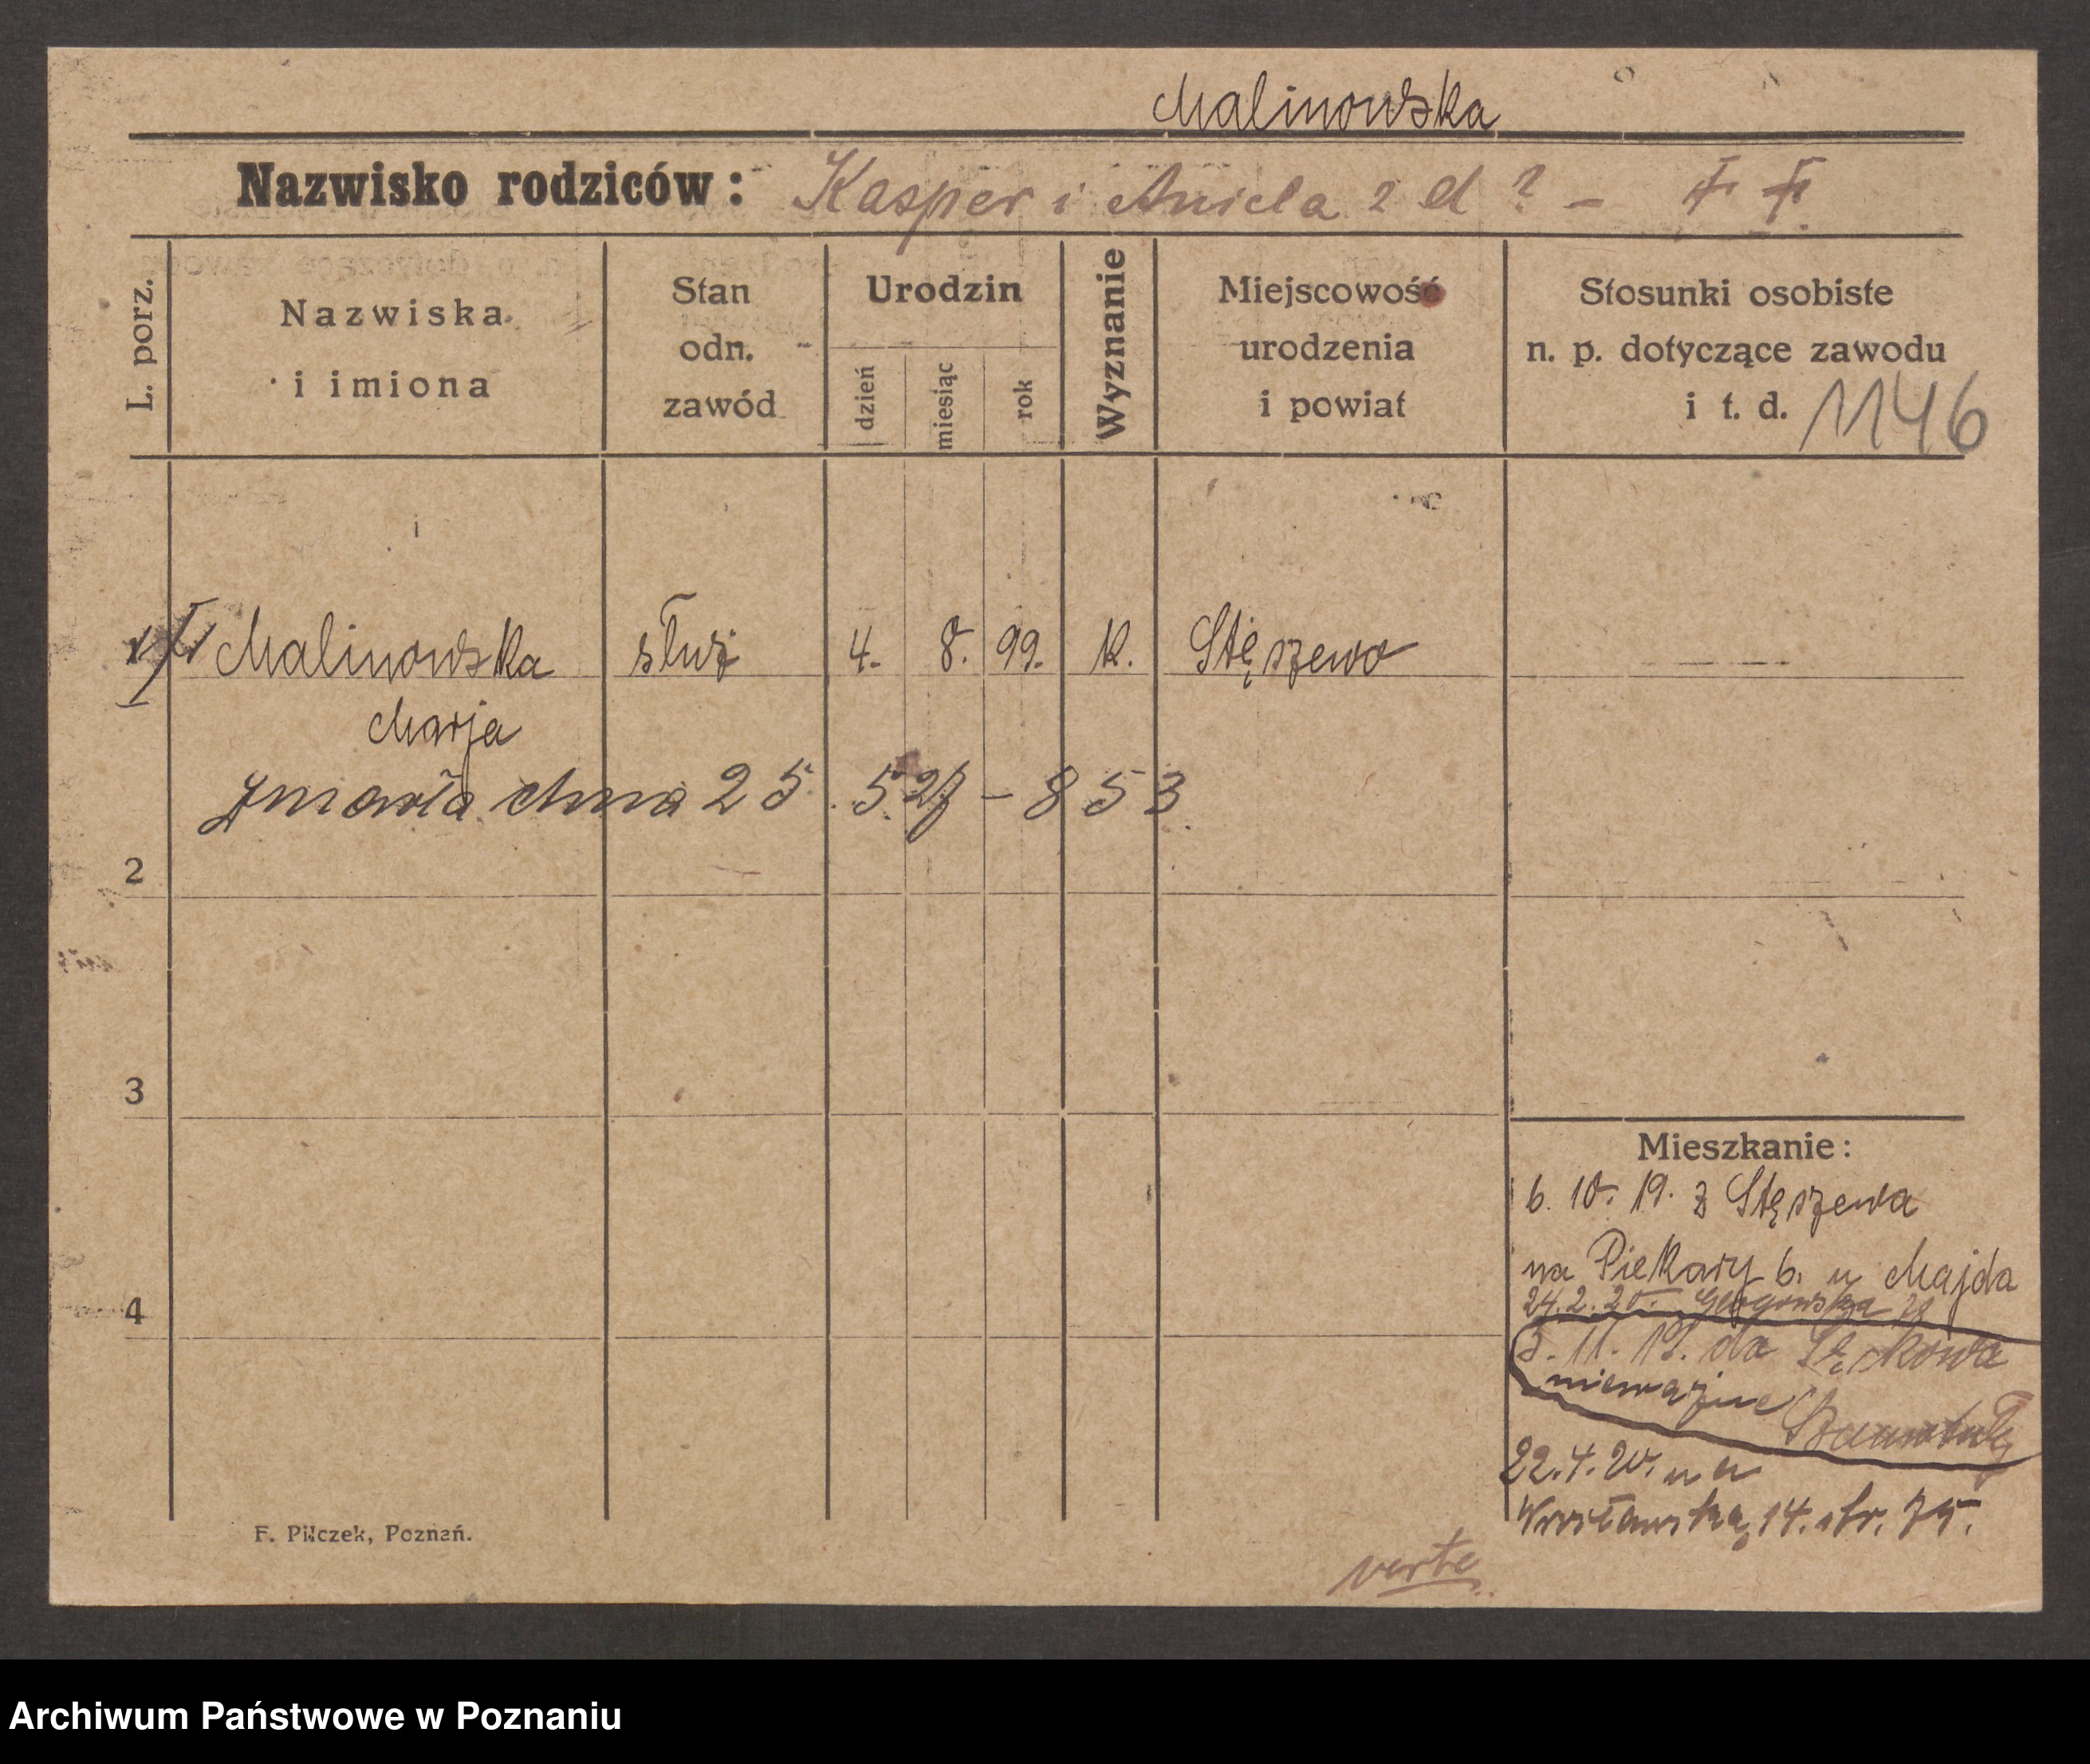 Malinowska
Nazwisko rodziców: Kasper i Aniela z d ? – † †
L. porz.
Nazwiska
i imiona
Stan
odn.
zawód
Urodzin
dzień
miesiąc
rok
Wyznanie
Miejscowość
urodzenia
i powiat
Stosunki osobiste
n. p. dotyczące zawodu
i t. d.
1146
Malinowska służ 4. 8. 99. K. Stęszewo
Marja
zmarła 25. 5. 27 – 853.
2
3
4
Mieszkanie:
6. 10. 19. z Stęszewa
na Piekary 6. u Majda
24. 2. 20. Głogowska
11. 19. do
nieważne
22. 4. 20. na
Wrocławską 14. str. 75.
F. Pilczek, Poznań.
verte
Archiwum Państwowe w Poznaniu